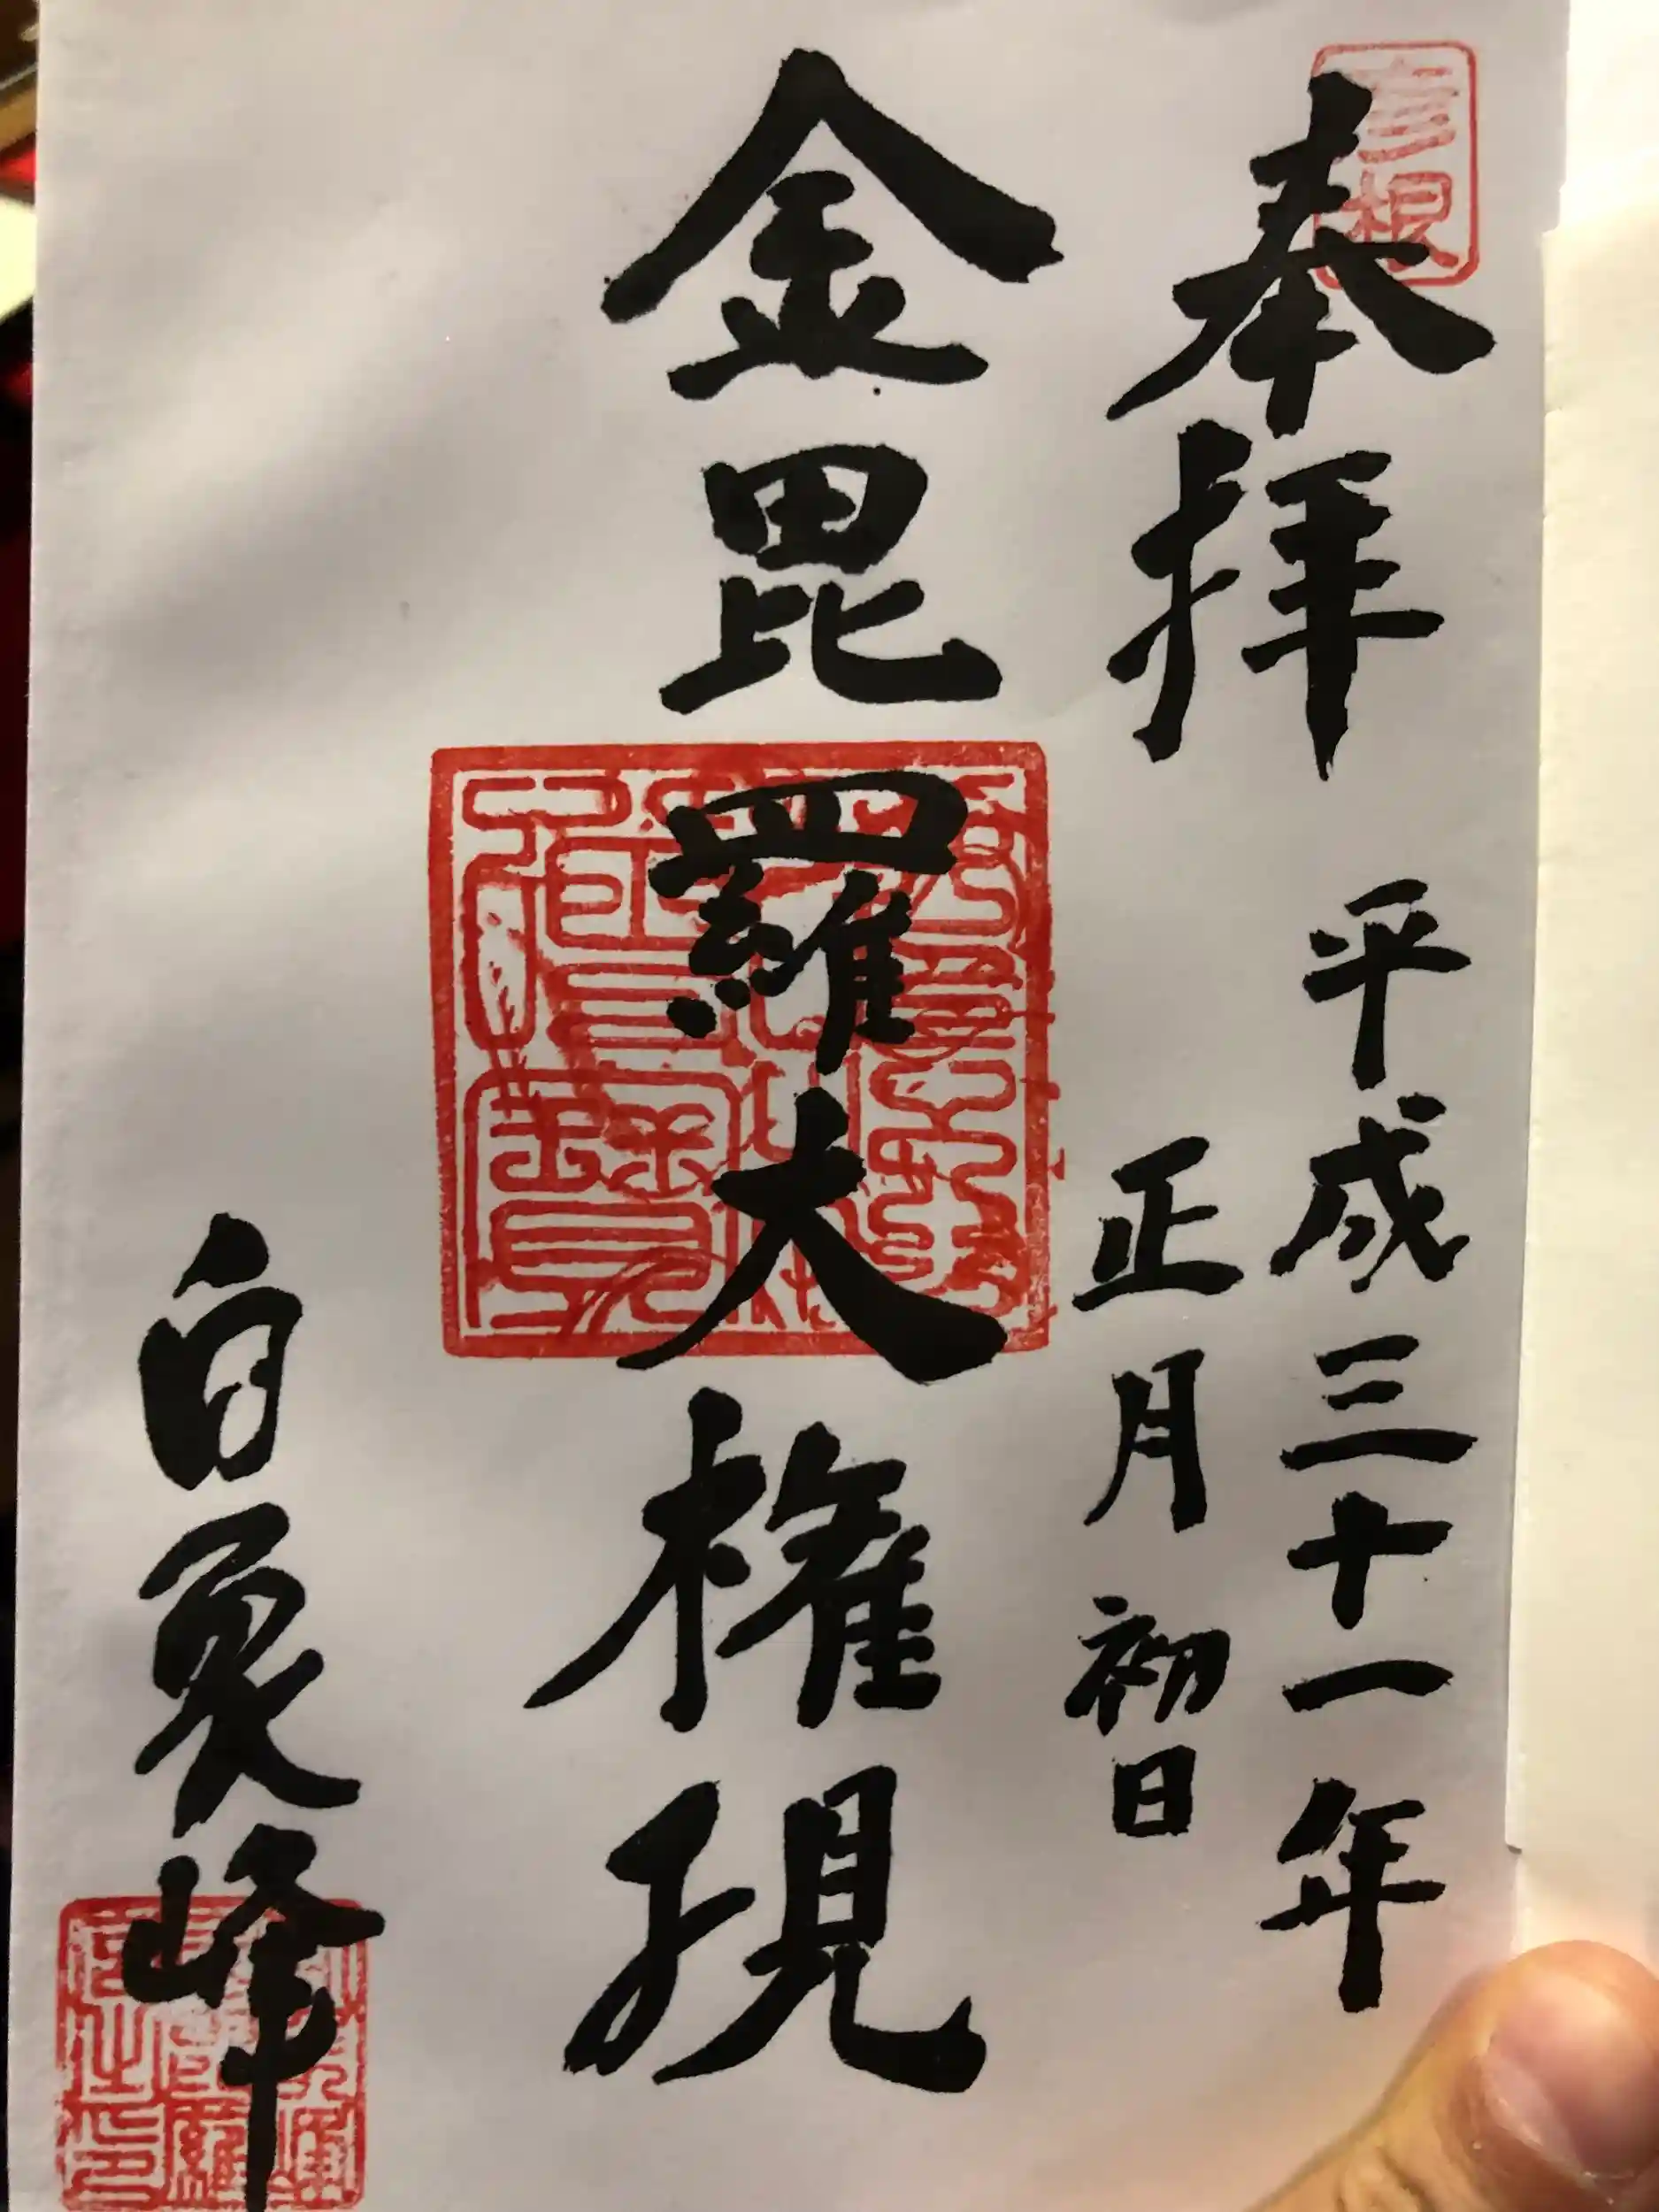 奉拝
彦根
平成三十一年
正月初日
金毘羅大権現
白象峰